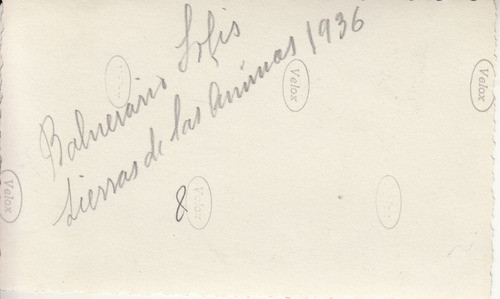 Balneario Solis
Sierras de las Animas 1936
Velox
Velox
Velox
Velox
8